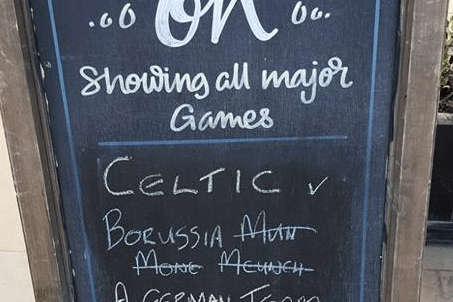 ON
Showing all major
Games
CELTIC ✓
BORUSSIA MUN
MEUNCH
A GERMAN